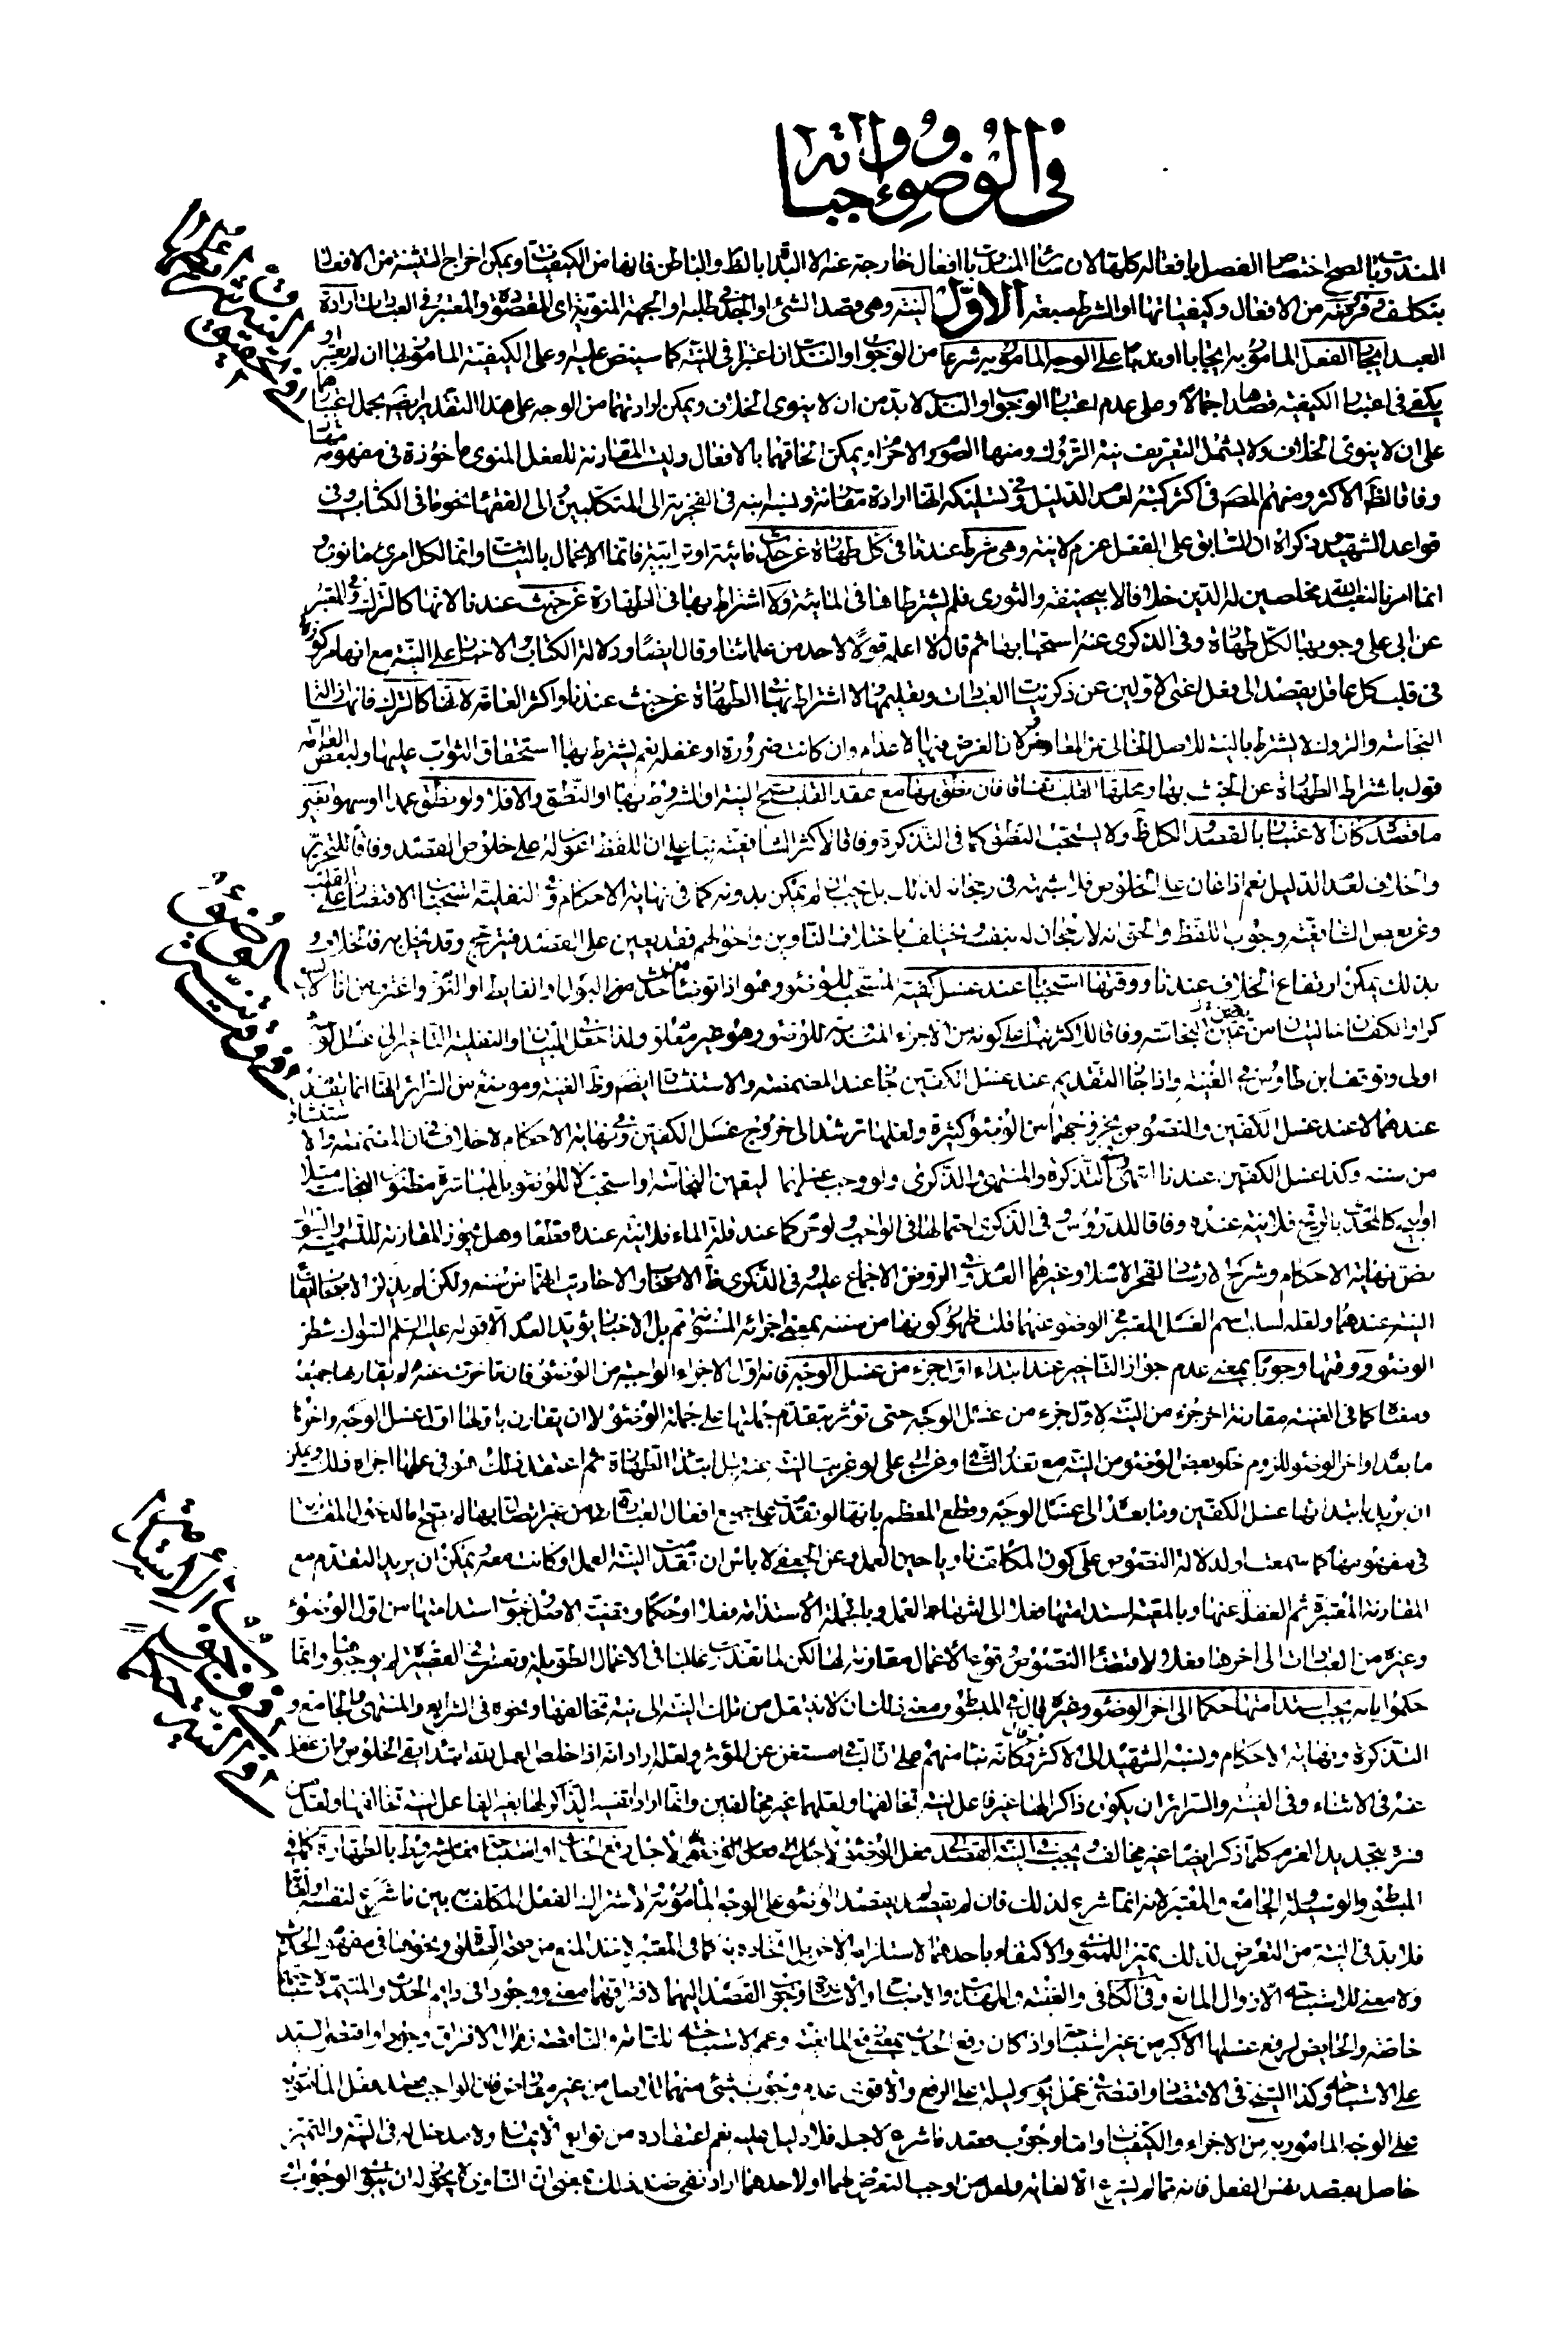 في الوضوء وواجباته
المندوبا لصح اختصاص الفصل بافعاله كلها لان سائر المندوبات افعال خارجة عنه الا البدأة بالظ والباطن فانها من الكيفيات ويمكن اخراج التثنية من الافعال
بتكلف من الافعال وكيفياتها او الشرط سبعة الاول النية وهي قصد الشئ او الجد في طلبه والجهة المنوية اي المقصودة والمعتبر في العبادات ارادة
العبد ايجاد الفعل المامور به ايجابا او ندبا على الوجه المامور به شرعا من الوجوب او الندب ان اعتبرا في النية كما سينص عليه وعلى الكيفية المامور بها ان لم يعتبر او
يكفي في اعتبار الكيفية قصدها اجمالا وعلى عدم اعتبار الوجوب او الندب لابد من ان لا ينوي الخلاف ويمكن ارادتهما من الوجه على هذا التقدير ايضا بجمل اعتبارهما
على ان لا ينوي الخلاف ولا يشمل التعريف نية التروك ومنها الصوم والاحرام ويمكن الحاقهما بالافعال وليست المقارنة للفعل المنوي ماخوذة في مفهومها
وفاقا لظ الاكثر ومنهم المصر في اكثر كتبه لعدم الدليل وفي انها ارادة مقارنة ونسبه ابنه في الفخرية الى المتكلمين والى الفقهاء نحو ما في الكتاب وفي
قواعد الشهيد وذكراه ان السابق على الفعل عزم لا نية وهي شرط عندنا في كل طهارة عن حدث مائية او ترابية فانما الاعمال بالنيات وانما لكل امرئ ما نوى و
انما امرنا لنعبد الله مخلصين له الدين خلافا لابي حنيفة والثوري فلم يشترطاها في المائية ولا اشتراط بها في الطهارة عن خبث عندنا لانها كالترك وفي المعتبر
عن ابي علي وجوبها لكل طهارة وفي الذكرى عنه استحبابها ثم قال لا اعلمه قولا لاحد من علمائنا وقال ايضا ودلالة الكتاب والاخبار على النية مع انها مركوزة
في قلب كل عاقل يقصد الى فعل اغنى الاولين عن ذكر نيات العبادات وتعليمها ولا اشتراط بها في الطهارة عن خبث عندنا واكثر العامة لانها كالترك فانها ازالة
النجاسة والتروك لا يشترط بالنية للاصل الخالي عن المعارض لان الغرض منها الاعدام وان كانت ضرورة او غفلة نعم يشترط بها استحقاق الثواب عليها ولبعض العامة
قول باشتراط الطهارة عن الخبث بها ومحلها القلب اتفاقا فان نطق بها مع عقد القلب صح النية او المشروط بها او النطق والا فلا ولو نطق عمدا او سهوا بغير
ما قصده كان الاعتبار بالقصد لا اللفظ ولا يستحب النطق كما في التذكرة وفاقا لاكثر الشافعية بناء على ان اللفظ اعون له على خلوص القصد وفاقا للتحرير
والخلاف لعدم الدليل نعم اذا اعان على الخلوص فلا شبهة في رجحانه لذلك بل يجب ان لم يمكن بدونه كما في نهاية الاحكام وفي النفلية استحباب الاقتصار على القلب
وعن بعض الشافعية وجوب اللفظ والحق انه لا رجحان له بنفسه ويختلف باختلاف الناوين واحوالهم فقد يعين على القصد فيترجح وقد يخل به فالخلاف و
بذلك يمكن ارتفاع الخلاف عندنا ووقتها استحبابا عند غسل كفيه المستحب للوضوء وهو اذا توضأ من حدث البول او الغائط او النوم واغترف من اناء لا يسع
كرا والكفان خاليتان من عين النجاسة وفاقا للاكثر بناء على كونه من الاجزاء المندوبة للوضوء وهو غير معلوم ولذا جعل البيان والنفلية التاخير الى غسل الوجه
اولى وتوقف ابن طاوس في الغنية واذا جاز التقديم عند غسل الكفين جاز عند المضمضة والاستنشاق ايضا وظ الغنية وموضع من السرائر انها انما يقدم
عندهما لا عند غسل الكفين والنصوص بخروجهما من الوضوء كثيرة ولعلها ترشد الى خروج غسل الكفين وفي نهاية الاحكام لا خلاف في ان المضمضة والاستنشاق
من سننه وكذا غسل الكفين عندنا انتهى وفي التذكرة والمنتهى والذكرى ولو وجب غسلهما ليقين النجاسة او استحب لا للوضوء بل لمباشرة مظنون النجاسة مثلا
او ابيح كالمحدث بالريح فلا نية عنده وفاقا للدروس وفي الذكرى احتمالها في الواجب ولو حرم كما عند قلة الماء فلا نية عنده قطعا وهل يجوز المقارنة للتسمية والسواك
نص نهاية الاحكام وشرح الارشاد لفخر الاسلام وغيرهما العدم وفي الروض الاجماع عليه وفي الذكرى ظ الاصحاب والاخبار انهما من سننه ولكن لم يذكر الاصحاب ايقاع
النية عندهما ولعله لسلب اسم الغسل المعتبر في الوضوء عنهما قلت ظهور كونهما من سننه بمعنى اجزائه المسنونة مم بل الاخبار يؤيد العدم الا قوله عليه السلم السواك شطر
الوضوء ووقتها وجوبا بمعنى عدم جواز التاخير عند ابتداء اول جزء من غسل الوجه فانه اول الاجزاء الواجبة من الوضوء فان تاخرت عنه لم يقارنها جميعه
ومعناه كما في الغنية مقارنة اخر جزء من النية لاول جزء من غسل الوجه حتى تؤثر بتقدم جملتها على جملة الوضوء لا ان يقارن باولها اول غسل الوجه واخرها
ما بعده او اخر الوضوء للزوم خلو بعض الوضوء من النية مع تعذر الثاني وعن ابي علي لو عزبت النية عنه قبل ابتداء الطهارة ثم اعتقد ذلك وهو في عملها اجزاه ذلك ويمكن
ان يريد بابتدائها غسل الكفين وما بعده الى غسل الوجه وقطع المعظم بانها لو تقدمت على جميع افعال العبادة من غير اتصال بها لم يصح اما لدخول المقارنة
في مفهومها كما سمعت او لدلالة النصوص على كون المكلف ناويا حين العمل وعن الجعفي لا باس ان تقدمت النية العمل او كانت معه ويمكن ان يريد التقدم مع
المقارنة المعتبرة ثم الغفلة عنها وبالمعية استدامتها فعلا الى انتهاء العمل وبالجملة الاستدامة فعلا او حكما وقضية الاصل وجوب استدامتها من اول الوضوء
وغيره من العبادات الى اخرها فعلا لاقتضاء النصوص وقوع الاعمال مقارنة لها لكن لما تعذرت غالبا في الاعمال الطويلة وتعسرت في القصيرة لم يوجبوها وانما
حكموا بانه يجب استدامتها حكما الى اخر الوضوء وغيره قال في المبسوط ومعنى ذلك ان لا ينتقل من تلك النية الى نية تخالفها ونحوه في الشرايع والمنتهى والجامع و
التذكرة ونهاية الاحكام ونسبه الشهيد الى الاكثر وكانه بنا منهم على ان الباقي مستغن عن المؤثر ولعله اراد انه اذا اخلص العمل لله ابتداء بقي الخلوص وان غفل
عنه في الاثناء وفي الغنية والسرائر ان يكون ذاكرا لها غير فاعل لنية تخالفها ولعلهما غير مخالفين وانما ارادا تفسير الذكر لها بغير الفاعل لنية تخالفها ولعل من
فسره بتجديد العزم كلما ذكر ايضا غير مخالف ويجب في النية القصد الى فعل الوضوء لاجل رفع الحدث او استباحة فعل مشروط بالطهارة كما في
المبسوط والوسيلة والجامع والمعتبر لانه انما شرع لذلك فان لم يقصده لم يقصد الوضوء على الوجه المامور به لاشتراك الفعل المكلف به بين ما شرع لنفسه او لغيره
فلا بد في النية من التعرض لذلك تميز اللمنوي والاكتفاء باحدهما لاستلزامه الاخر بل اتحاده به كما في المعتبر لاستناد المنع من نحو الصلوة ونحوها في مفهوم الحدث
ولا معنى للاستباحة الا زوال المانع وفي الكافي والغنية والمهذب والاصباح والاشارة وجوب القصد اليهما لافتراقهما معنى ووجودا في دايم الحدث والمتيمم لاستباحتهما
خاصة والحايض لرفع غسلها الاكبر من غير استباحة واذ كان رفع الحدث بمعنى رفع المانعية وعم الاستباحة التامة والناقصة زوال الافتراق وجودا واقتصر السيد
على الاستباحة وكذا الشيخ في الاقتصاد واقتصر في عمل يوم وليلة على الرفع والاقوى عدم وجوب شئ منهما اذا عما من غير معارض فان الواجب قصد فعل المامور به
على الوجه المامور به من الاجزاء والكيفيات واما وجوب قصد ما شرع لاجله فلا دليل عليه نعم اعتقاده من توابع الايمان ولا مدخل له في النية والتميز
حاصل بقصد نفس الفعل فانه ما لم يشرع الا لغايته ولعل من اوجب التعرض لهما او لاحدهما اراد نفي ضد ذلك بمعنى ان الناوي لا يجوز له ان ينوي الوجوب